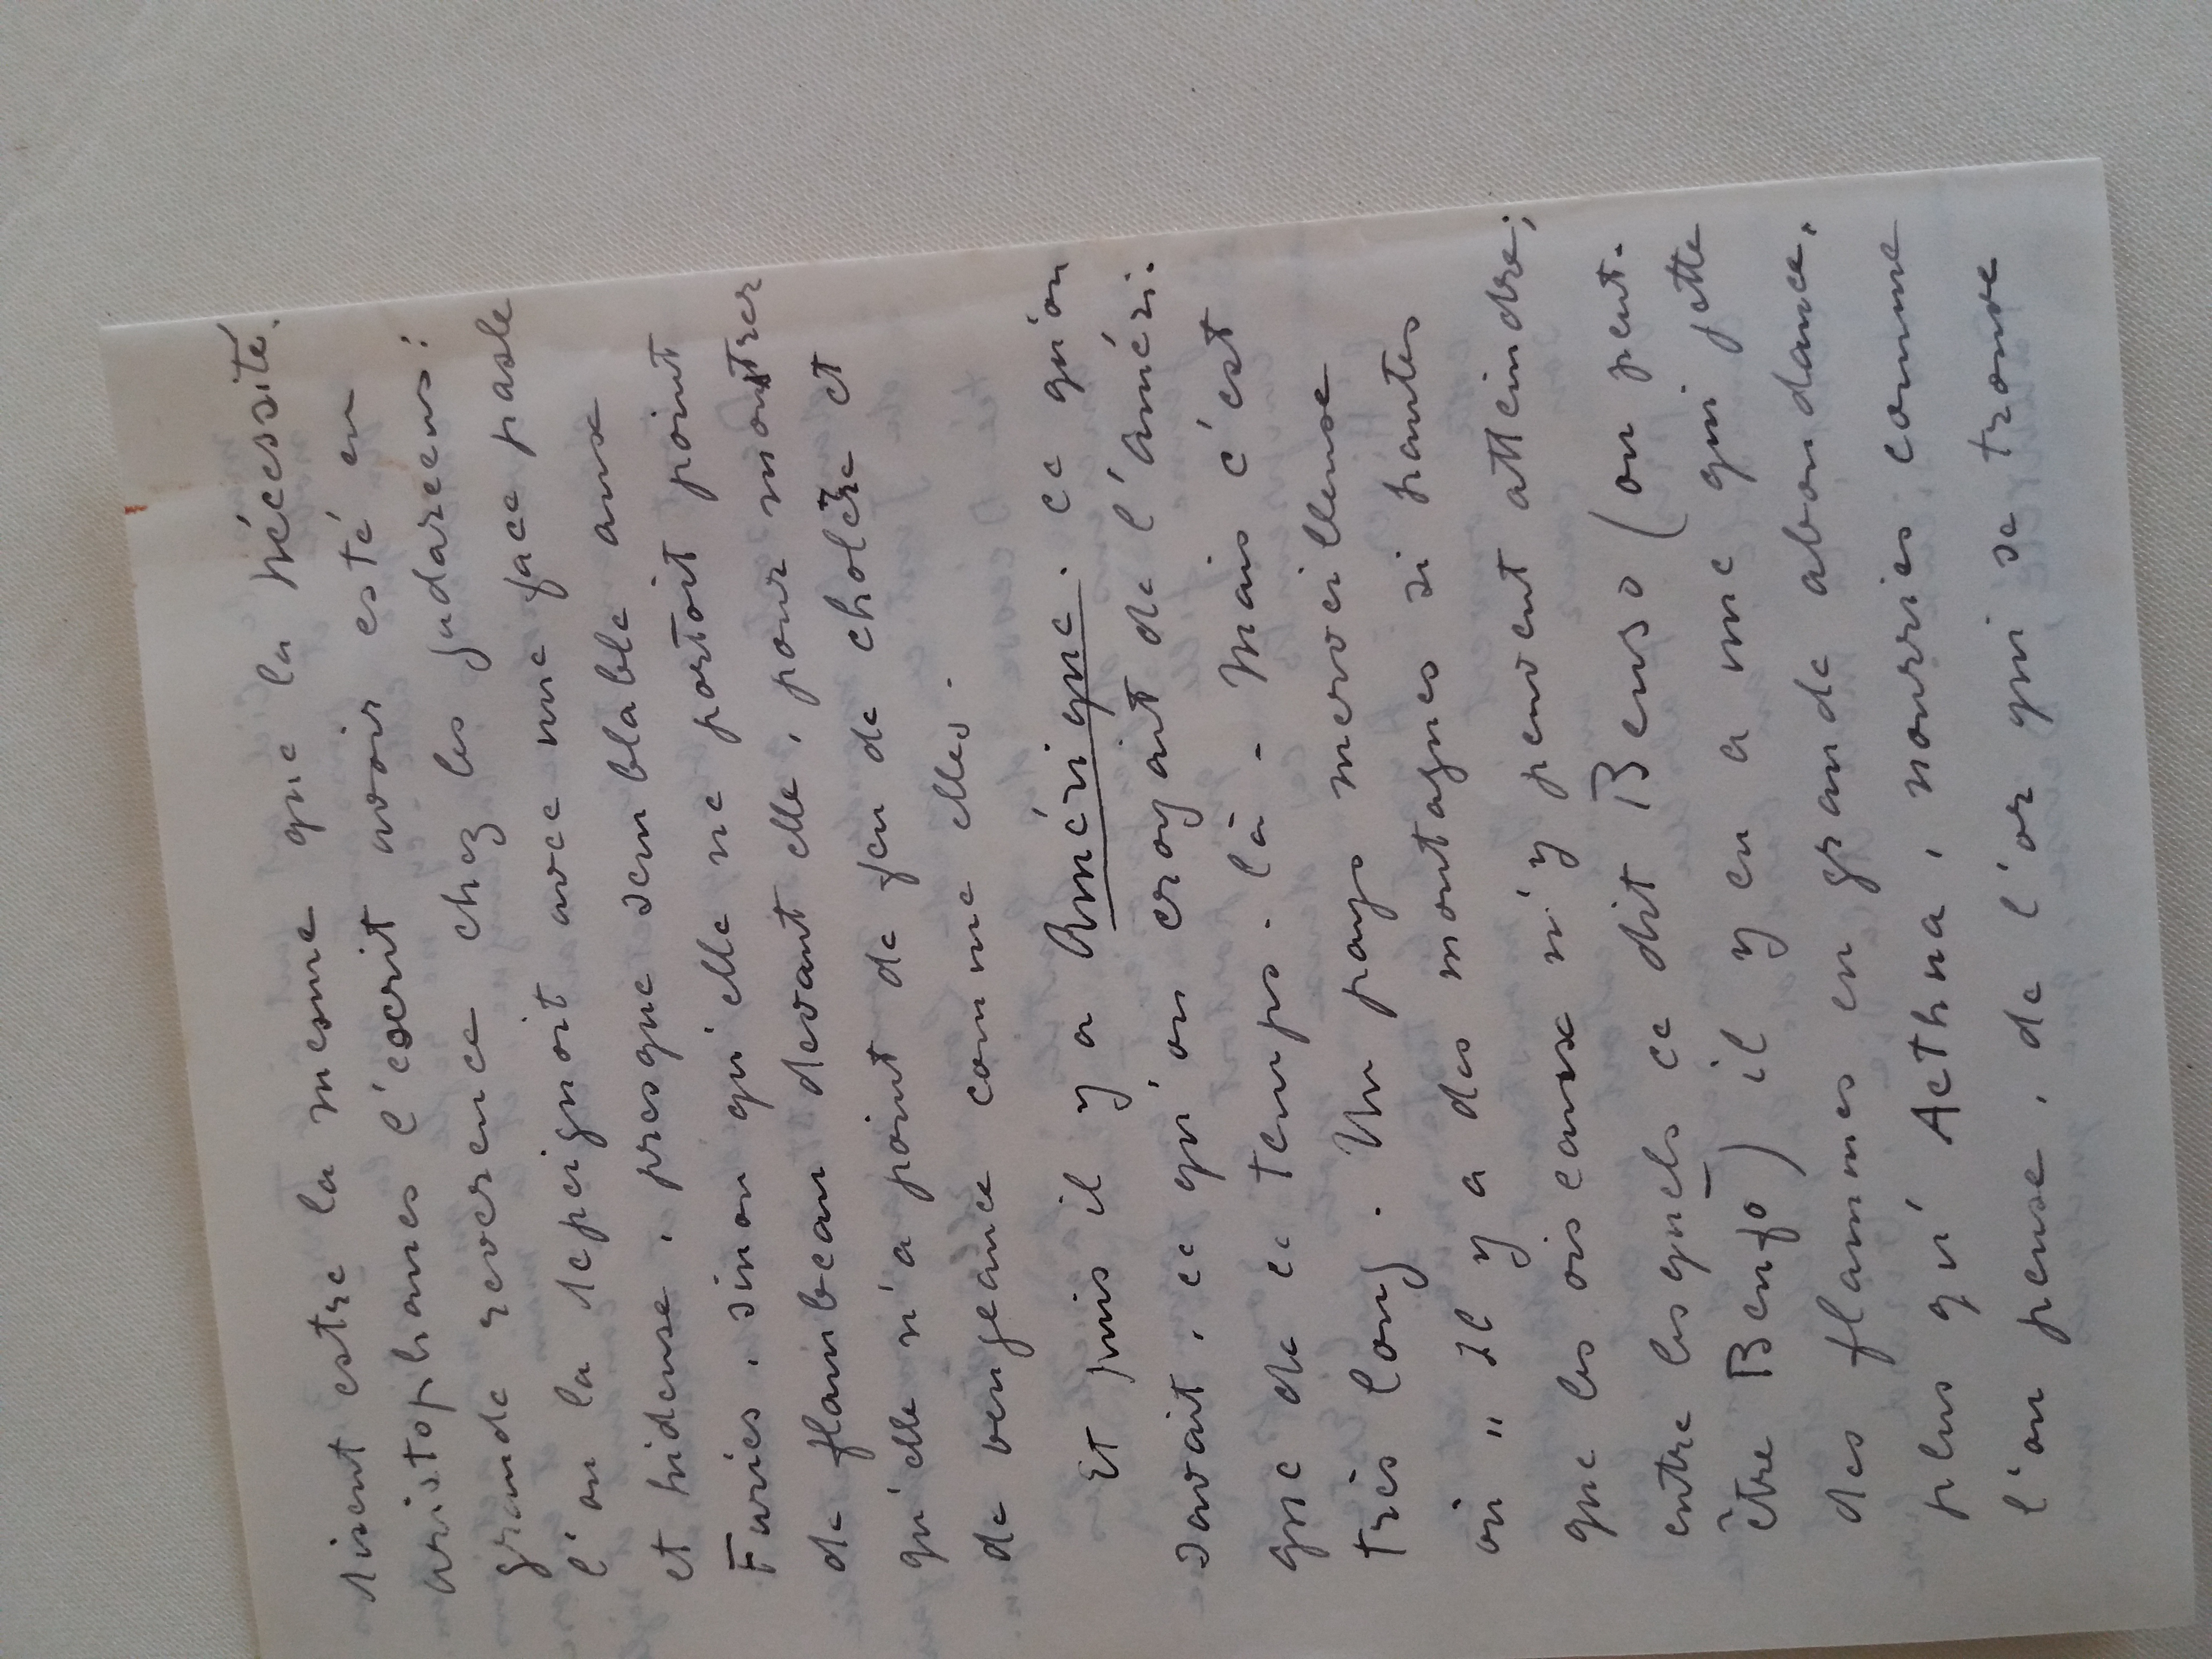 disent estre la mesme que la nécessité.
aristophanes l'escrit avoir esté en
grande reverence chez les judareens:
l'on la depeignoit avec une face pasle
et hideuse, presque semblable aux
Furies, sinon qu'elle ne portoit point
de flambeau devant elle, pour monstrer
qu'elle n'a point de feu de cholère et
de vengeance comme elles.
Et puis il y a Amérique. ce qu'on
savait, ce qu'on croyait de l'améri-
que de ce temps-là - Mais c'est
très long. Un pays merveilleuse
où " Il y a des montagnes si hautes
que les oiseaux n'y peuvent atteindre;
entre lesquels ce dit Benso (on peut-
être Benzo) il y en a une qui jette
des flammes en grande abondance,
plus qu' Aethna, nourries comme
l'on pense, de l'or qui se trouve